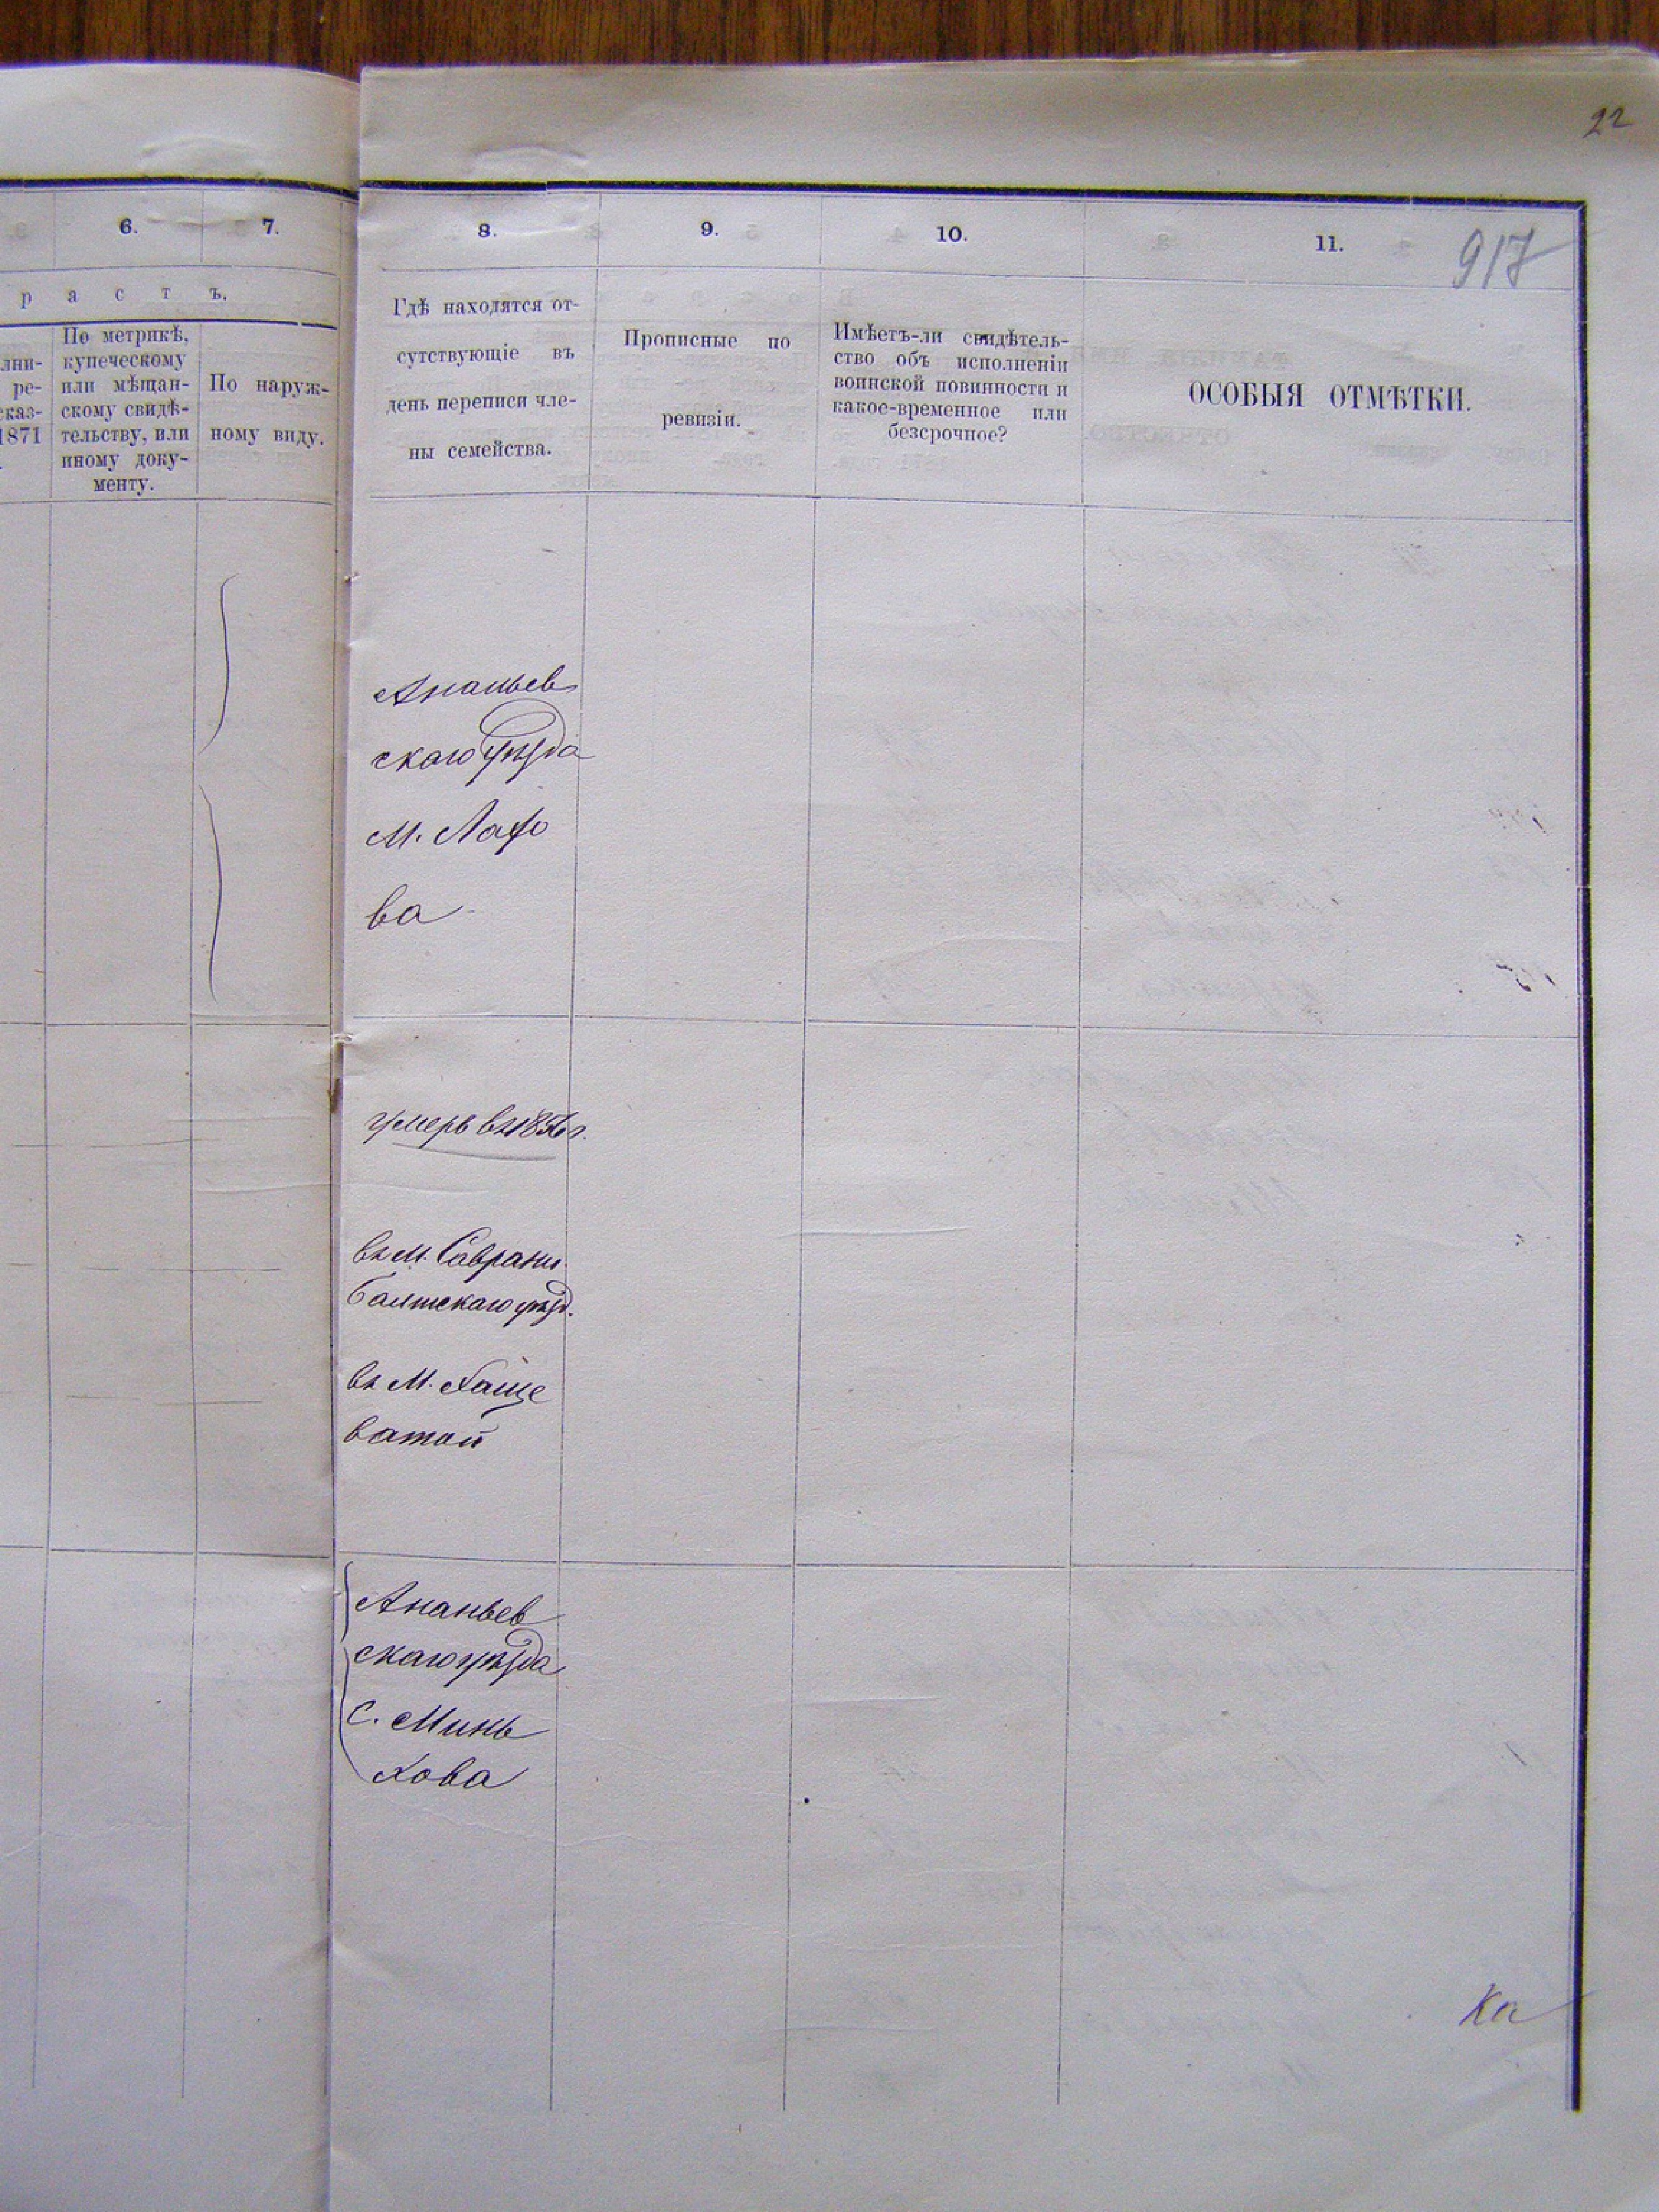 22
6.
7.
8.
9.
10.
11.
917
р а с т ъ.
По метрикѣ,
купеческому
или мѣщан-
скому свидѣ-
тельству, или
иному доку-
менту.
По наруж-
ному виду.
лни-
ре-
сказ-
1871
Гдѣ находятся от-
сутствующіе въ
день переписи чле-
ны семейства.
Прописные по
ревизіи.
Имѣетъ-ли свидѣтель-
ство объ исполненіи
воинской повинности и
какое-временное или
безсрочное?
ОСОБЫЯ ОТМѢТКИ.
Ананьев
скаго уѣзда
М.
ва
умеръ въ 1856 г.
въ М. Саврани
Балтскаго уѣзд.
въ М. Хаще
ватой
Ананьев
скаго уѣзда
С. Минь
кова
Ка